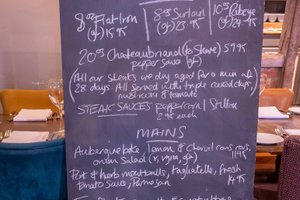 8oz Flat Iron (gf) 15.95 | 8oz Sirloin (gf) 24.95 | 10oz Ribeye (gf) 29.95
20oz Chateaubriand (to share) 59.95
pepper sauce (gf)
(All our steaks are dry aged for a min of
28 days All served with triple cooked chips,
mushroom & tomato
STEAK SAUCES peppercorn | Stilton
2.95 each
MAINS
Aubergine bake | lemon & chervil cous cous,
onion salad (v, vgn, gf)
Pork & herb meatballs, tagliatelle, fresh
tomato sauce, Parmesan